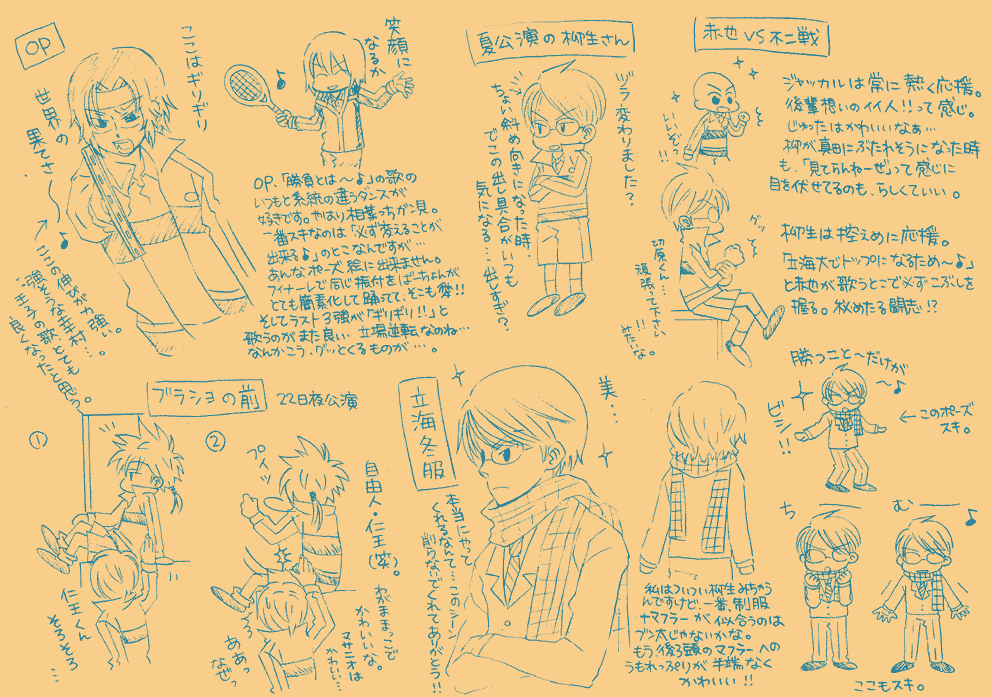 OP
ここはギリギリ
世界の
果てさ〜♪
ここの伸びが力強い。
強そうな幸村…。
王子の歌、とても
良くなったと思う。
笑顔に
なるか
♪
OP、「勝負とは〜♪」の歌の
いつもと系統の違うダンスが
好きです。やはり相葉っちガン見。
一番スキなのは「必ず変えることが
出来る♪」のとこなんですが…
あんなポーズ絵に出来ません。
フィナーレで同じ振付をばーちょんが
とても簡素化して踊ってて、そこも
そしてラスト3強が「ギリギリ!!」と
歌うのがまた良い…立場逆転なのね…
なんかこう、グッとくるものが…。
夏公演の柳生さん
ヅラ変わりました?
ちょい斜め向きになった時、
でこの出し具合がいつも
気になる…出しすぎ?
赤也VS不二戦
いいぞっ!!
ジャッカルは常に熱く応援。
後輩想いのイイ人!!って感じ
じゅったはかわいいなぁ…
柳が真田にぶたれそうになった時
も、「見てらんねーぜ」って感じに
目を伏せてるのも、らしくていい。
グッ
切原くん…
頑張って下さい
!!
みたいな。
柳生は控えめに応援。
「立海大でトップになるため〜♪」
と赤也が歌うとこで必ずこぶしを
握る。秘めたる闘志!?
ブラショの前
22日夜公演
①
仁王くん
そろそろ
…
②
プイッ
自由人・仁王(笑)。
わがままっこで
かわいいな。
マサニオは
かわいい…
ああっ
なぜっ
立海冬服
美…
本当にやって
くれるなんて…このシーン
削らないでくれてありがとう!!
私はついつい柳生みちゃう
んですけど、一番、制服
+マフラーが似合うのは
ブン太じゃないかな。
もう後ろ頭のマフラーへの
うもれっぷりが半端なく
かわいい!!
勝つこと〜だけが
〜♪
ビシ!!
←このポーズ
スキ。
ち
む
♪
ここもスキ。